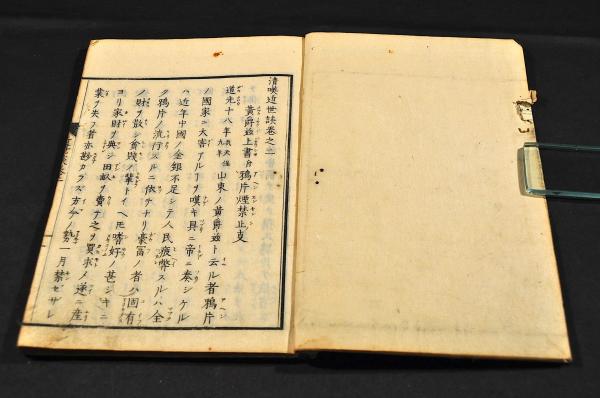 清嘆近世談巻之二
黄爵滋上書シテ鴉片煙禁止ノ支
道光十八年我天保九年山東ノ黄爵滋ト云ル者鴉片
ノ國家ニ大害アルヿヲ嘆キ具ニ帝ニ奏シケル
ハ近年中國ノ金銀不足シテ人民疲幣スルハ全
ク鴉片ノ流行スルニ依テナリ豪富ノ者ハ固有
ノ財ヲ散シ貧賎ノ輩トイヘモ嗜好ノ甚シキニ
ヨリ家財ヲ典シ田畝ヲ賣テ之ヲ買求メ遂ニ産
業ヲ失フ者亦尠カラズ方今ノ勢一月禁セザレ